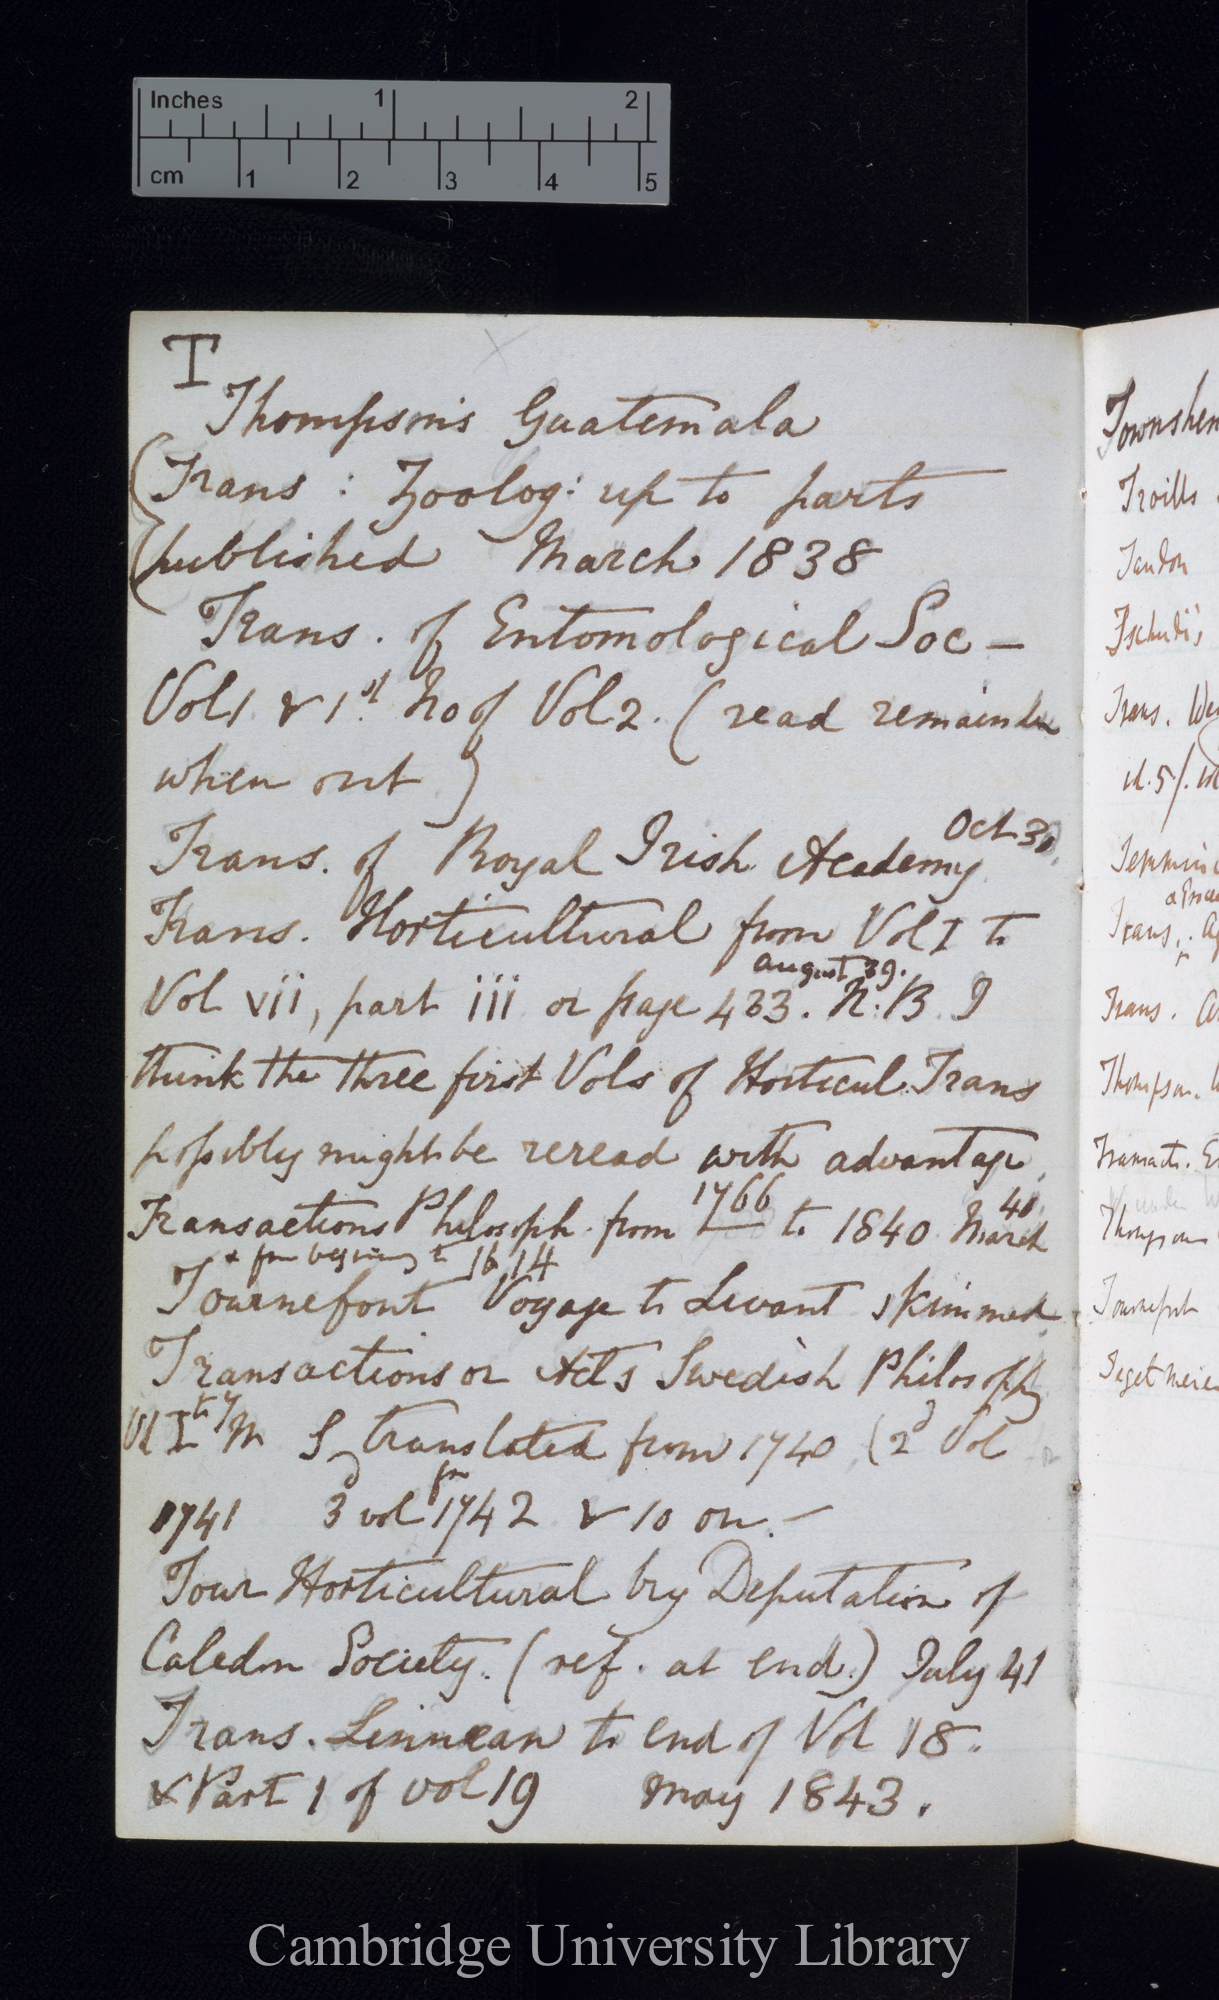 Inches 1 2
cm 1 2 3 4 5
T
Thompson's Guatemala
(Trans : Zoolog: up to parts
(published March 1838
Trans. of Entomological Soc —
Vol 1 & 1st No of Vol 2. (read remainder
when out)
Oct 39.
Trans. of Royal Irish Academy
Trans. Horticultural from Vol I to
august 39.
Vol vii, part iii or page 433. N.B. I
think the three first Vols of Horticul. Trans
possibly might be reread with advantage.
1766 40.
Transactions Philosoph. from to 1840 March
+ from beginning to 16 14
Tournefort Voyage to Levant skimmed.
Transactions or Acts Swedish Philosoph
to 7
Vol I M S translated from 1740 (2d Vol
from
1741 3d vol 1742 & so on. —
Tour Horticultural by Deputation of
Caledon Society. (ref. at end.) July 41
Trans. Linnean to end of Vol 18.
& Part 1 of vol 19 May 1843.
Townshen
Troills
Tandon
Tschudi's
Trans.
Temminc
Trans.
Trans.
Thompson.
Transact.
Thompson
Tournefort
Tegetmeier
Cambridge University Library